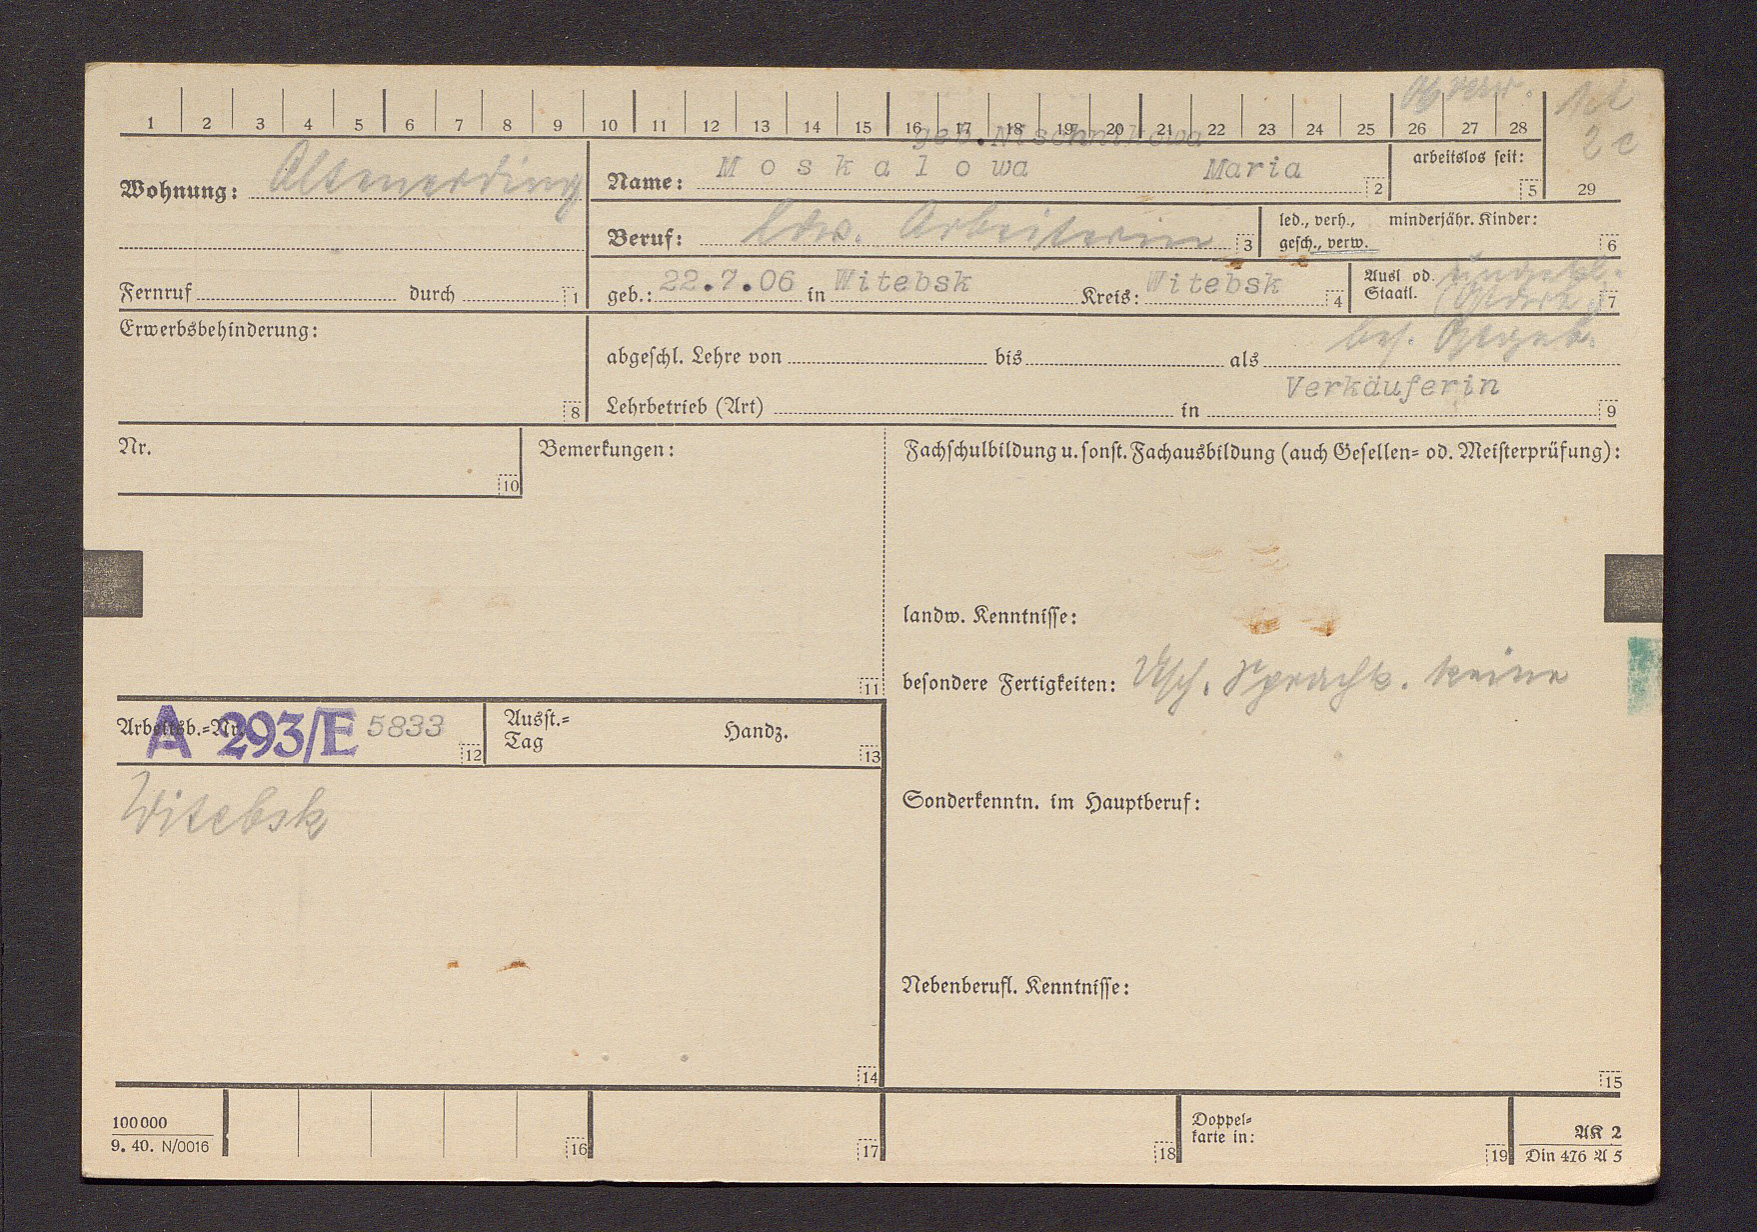 1 2 3 4 5 6 7 8 9 10 11 12 13 14 15 16 17 18 19 20 21 22 23 24 25 26 27 28
geb. Nischnikowa
Wohnung: Altenerding
Name: Moskalowa Maria 2
arbeitslos seit: 5
29
Beruf: ldw. Arbeiterin 3
led., verh., minderjähr. Kinder:
gesch., verw. 6
Fernruf durch 1
geb.: 22.7.06 in Witebsk Kreis: Witebsk 4
Ausl. od.
Staatl. 7
Erwerbsbehinderung: 8
abgeschl. Lehre von bis als
Verkäuferin
Lehrbetrieb (Art) in 9
Nr. 10
Bemerkungen: 11
Fachschulbildung u. sonst. Fachausbildung (auch Gesellen- od. Meisterprüfung):
landw. Kenntnisse:
besondere Fertigkeiten: keine
Arbeitsb.-Nr. A 293/E 5833 12
Ausst.-
Tag Handz. 13
Witebsk
14
Sonderkenntn. im Hauptberuf:
Nebenberufl. Kenntnisse:
15
100000
9. 40. N/0016
16 17 18
Doppel-
karte in: 19
AK 2
Din 476 A 5